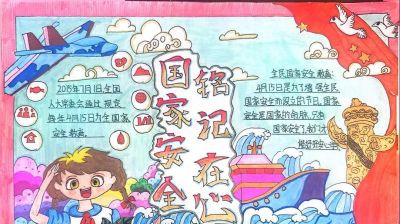 国家安全
铭记在心
2015年7月1日,全国
人大常委会通过,规定
每年4月15日为全国家
安全教育。
全民国家安全教育:
4月15日是为了增强全民
国家安全而设立的节日,国家
安全是国家的命脉,只有
国家安全了,我们才